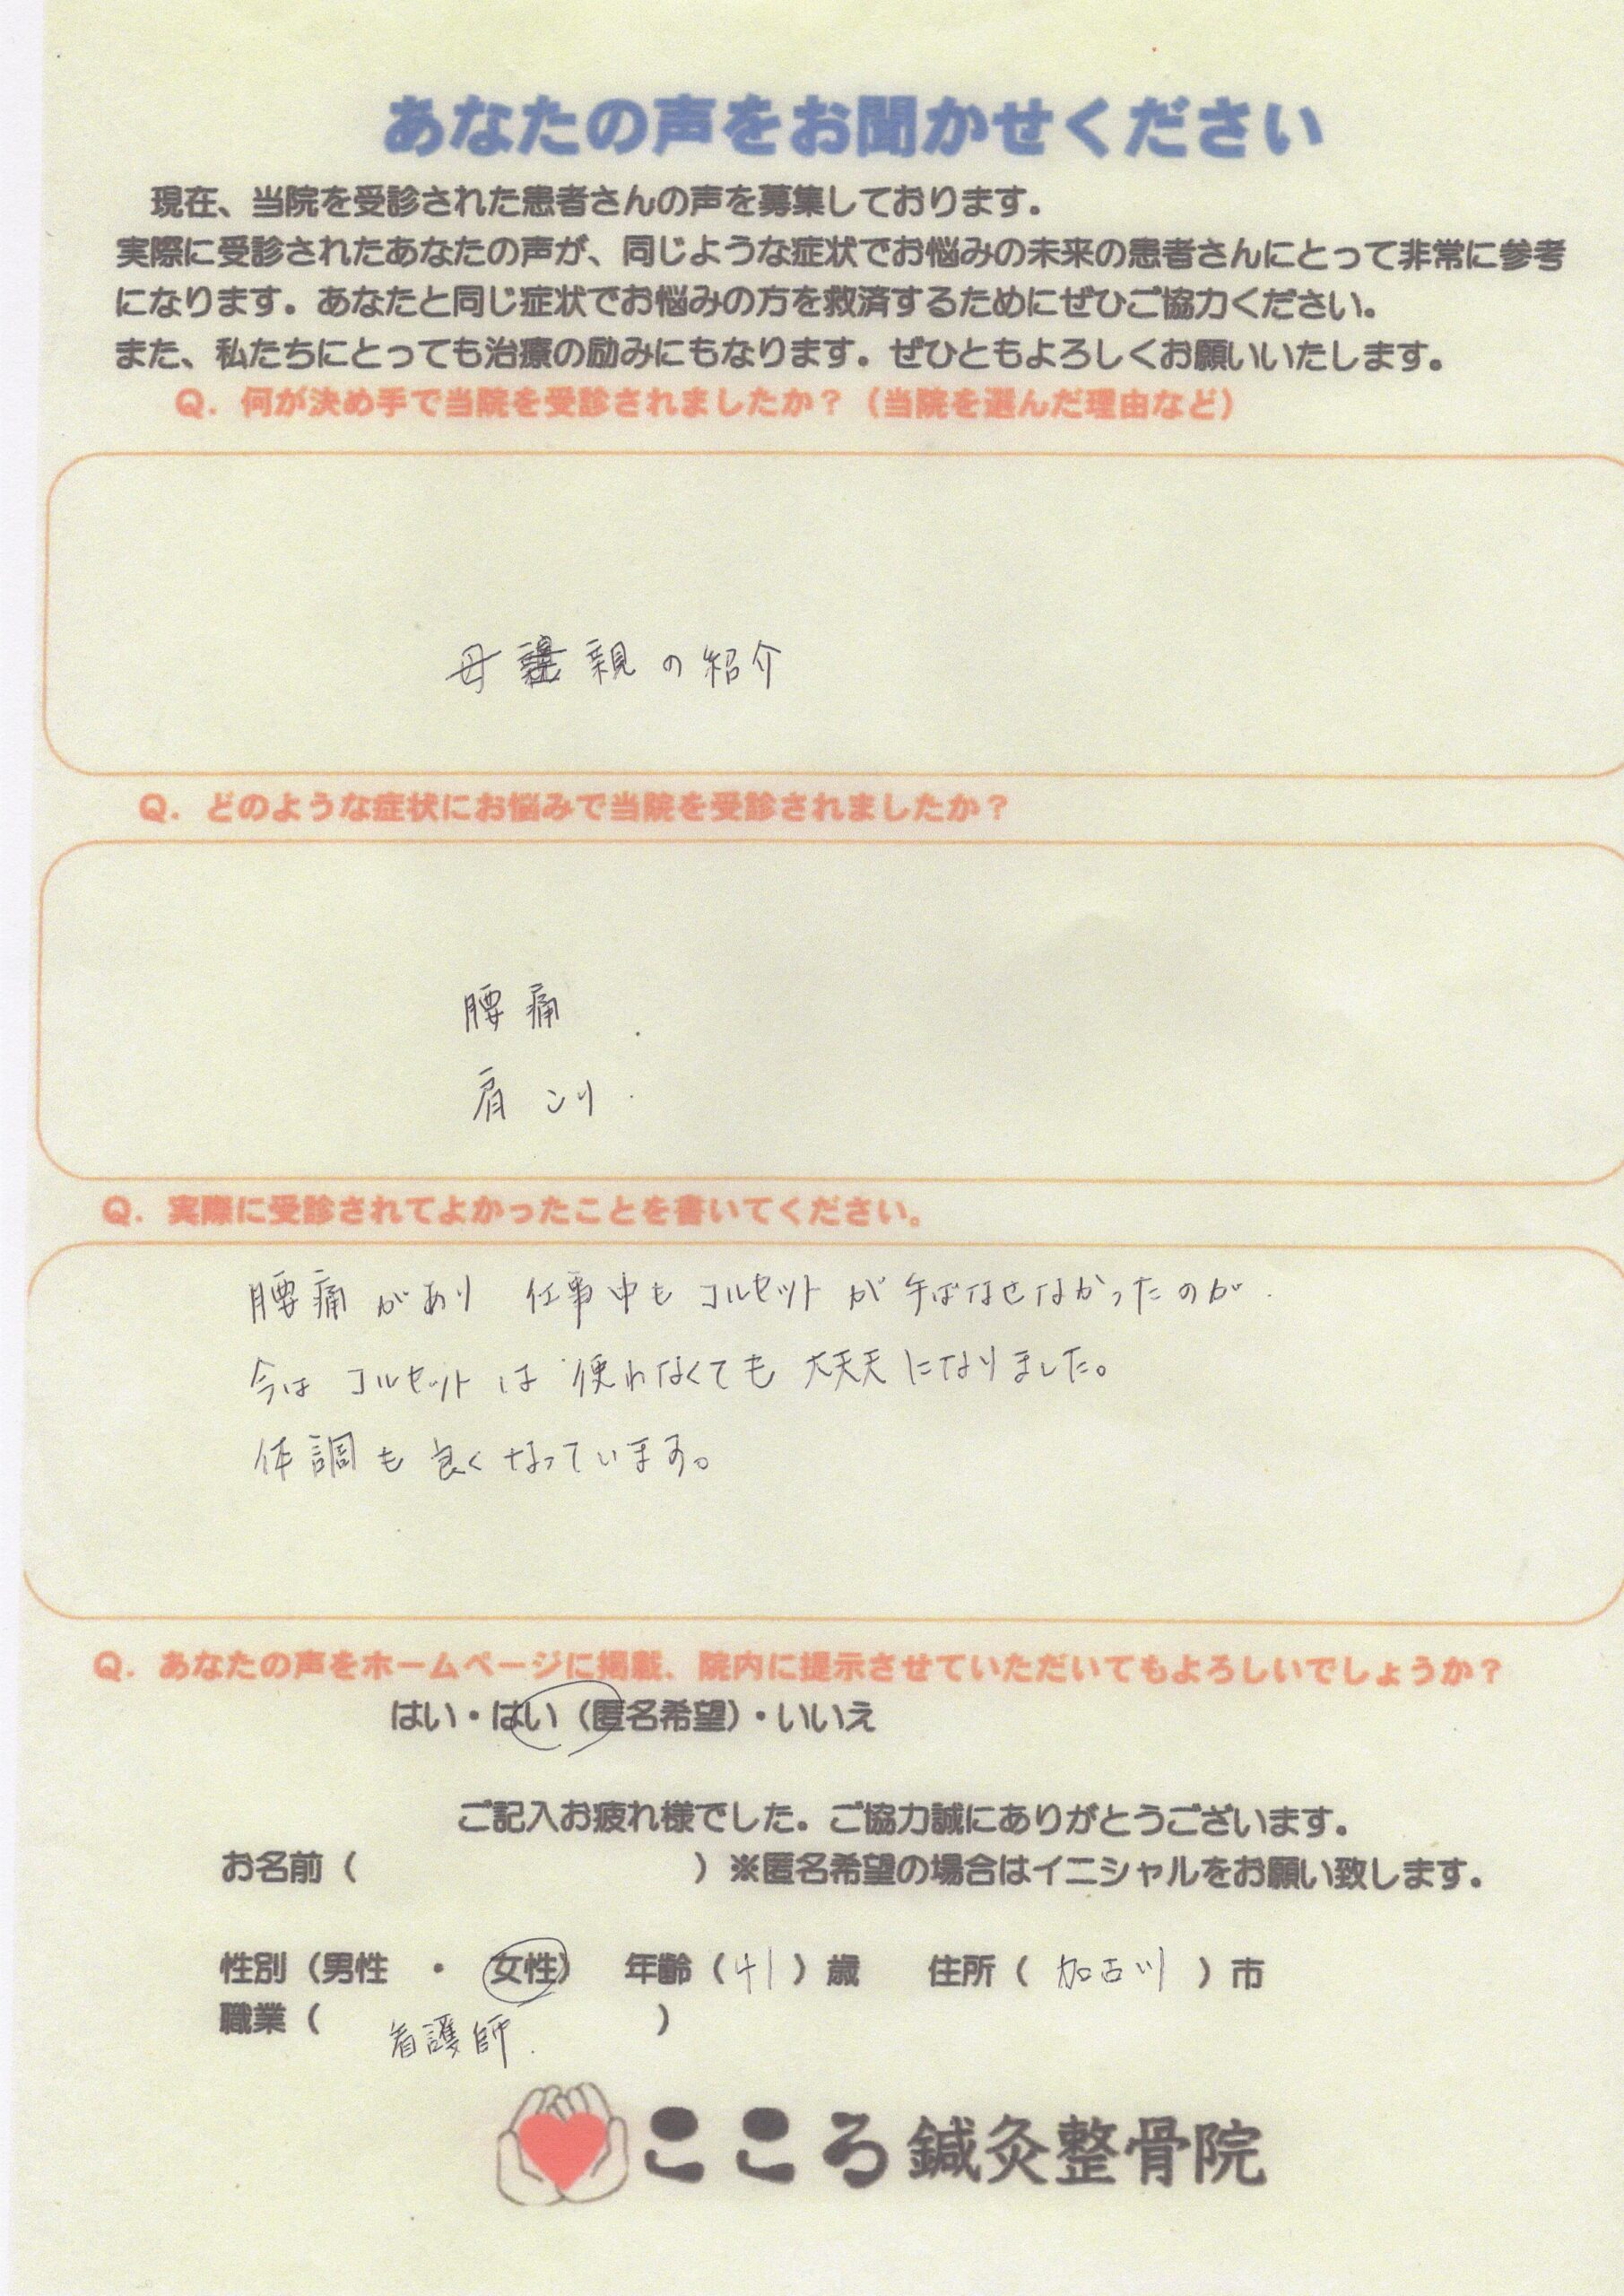 あなたの声をお聞かせください
現在、当院を受診された患者さんの声を募集しております。
実際に受診されたあなたの声が、同じような症状でお悩みの未来の患者さんにとって非常に参考
になります。あなたと同じ症状でお悩みの方を救済するためにぜひご協力ください。
また、私たちにとっても治療の励みにもなります。ぜひともよろしくお願いいたします。
Q. 何が決め手で当院を受診されましたか？（当院を選んだ理由など）
母親の紹介
Q. どのような症状にお悩みで当院を受診されましたか？
腰痛
肩こり
Q. 実際に受診されてよかったことを書いてください。
腰痛があり 仕事中も コルセットが 手ばなせなかったのが
今は コルセットは 使わなくても 大丈夫になりました。
体調も良くなっています。
Q. あなたの声をホームページに掲載、院内に提示させていただいてもよろしいでしょうか？
はい・はい（匿名希望）・いいえ
ご記入お疲れ様でした。ご協力誠にありがとうございます。
お名前（ ）※匿名希望の場合はイニシャルをお願い致します。
性別（男性 ・ 女性） 年齢（41）歳 住所（ 加古川 ）市
職業（ 看護師 ）
こころ鍼灸整骨院